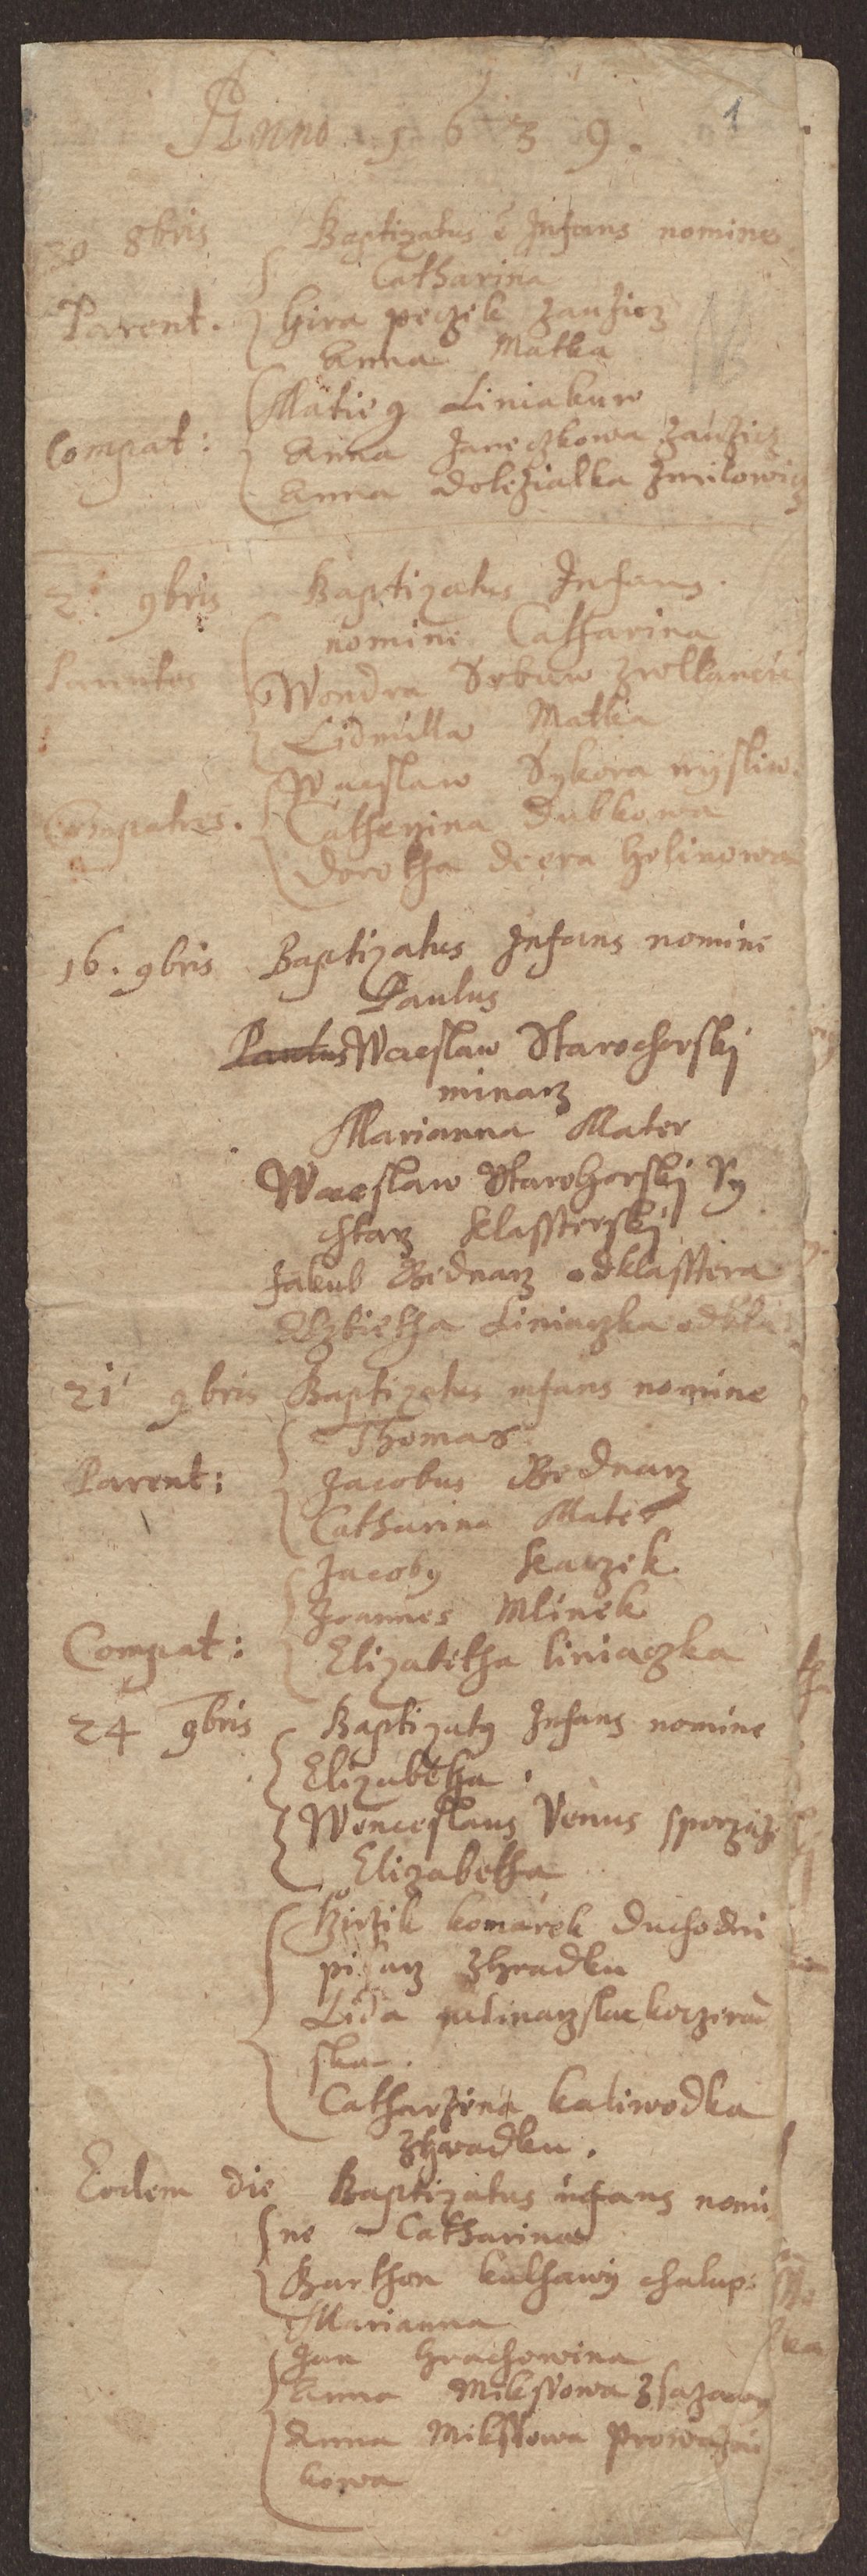 1
Anno 1639.
30 8bris Baptizatus ē Infans nomine
Catharina
Parent. Gira peczek
Anna Matka
Matieg Liniakuw
Compat: Anna Janeczkowa
Anna dolezialka zmilowicz
2. 9bris Baptizatus Infans.
nomine Catharina
Parentes Wondra Srbuw
Lidmilla Matka
Waczlaw Sykora
Compatres. Catherina Dubkowa
Dorotha dcera holinowa
16. 9bris Baptizatus Infans nomine
Paulus
Paulus Waczlaw Starohorskj
minarz
Marianna Mater
Waczlaw Starohorskj Ry
chtarz klassterskj
Jakub Bednarz odklasstera
Alzbietha Liniaczka odkla
21 9bris Baptizatus infans nomine
Thomas
Parent: Jacobus Bednarz
Catharina Mater
Jacobg
Joannes Mlinek
Compat: Elizabetha liniaczka
24 9bris Baptizatg Infans nomine
Elizabetha.
Wenceslaus Venus
Elizabetha
Girzik komarek Duchodni
pisarz zhradku
Lida
ska.
Catharzina kaliwodka
zhradku.
Eodem die Baptizatus infans nomi
ne Catharina
Barthon kulhawy chalup:
Marianna
Jan hrachowina
Anna Mikssowa zsazawy
Anna Mikssowa Prowazni
kowa